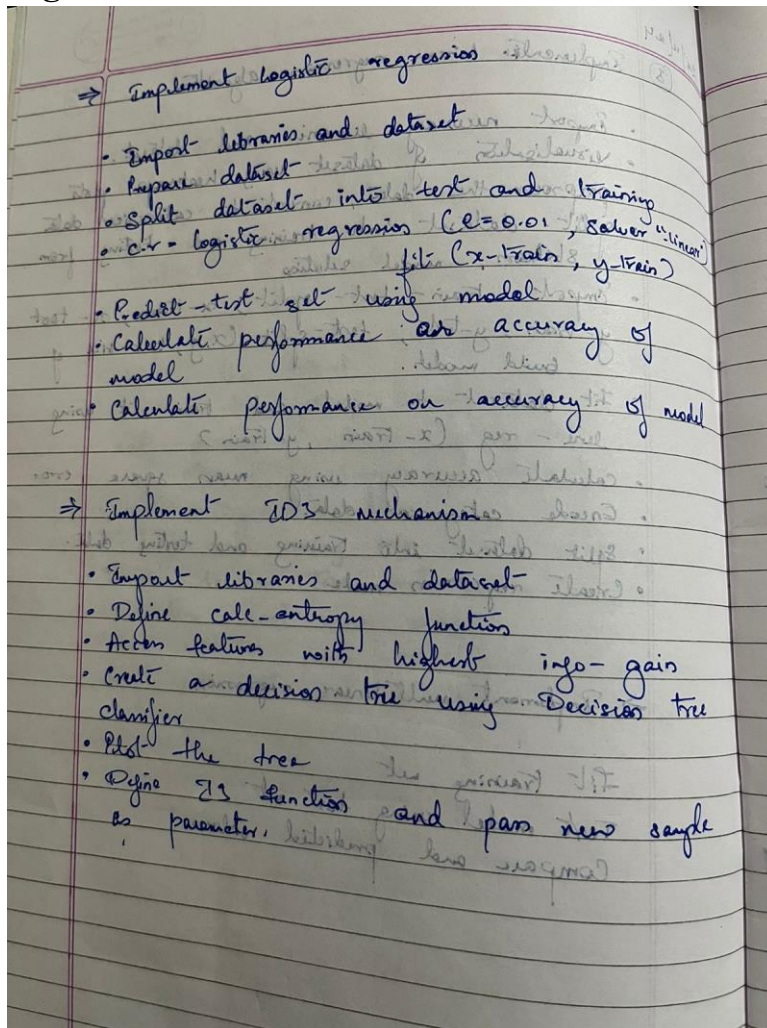 ⇒ Implement Logistic regression
• Import libraries and dataset
• Prepare dataset
• Split dataset into test and training
• c.r = logistic regression (C=0.01, solver "linear")
fit (x-train, y-train)
• Predict-test set using model
• Calculate performance accuracy of
model
• Calculate performance on accuracy of model
⇒ Implement ID3 mechanism
• Import libraries and dataset
• Define calc-entropy function
• Access features with highest info-gain
• Create a decision tree using Decision tree
classifier
• Plot the tree
• Define function and pass new sample
as parameter.